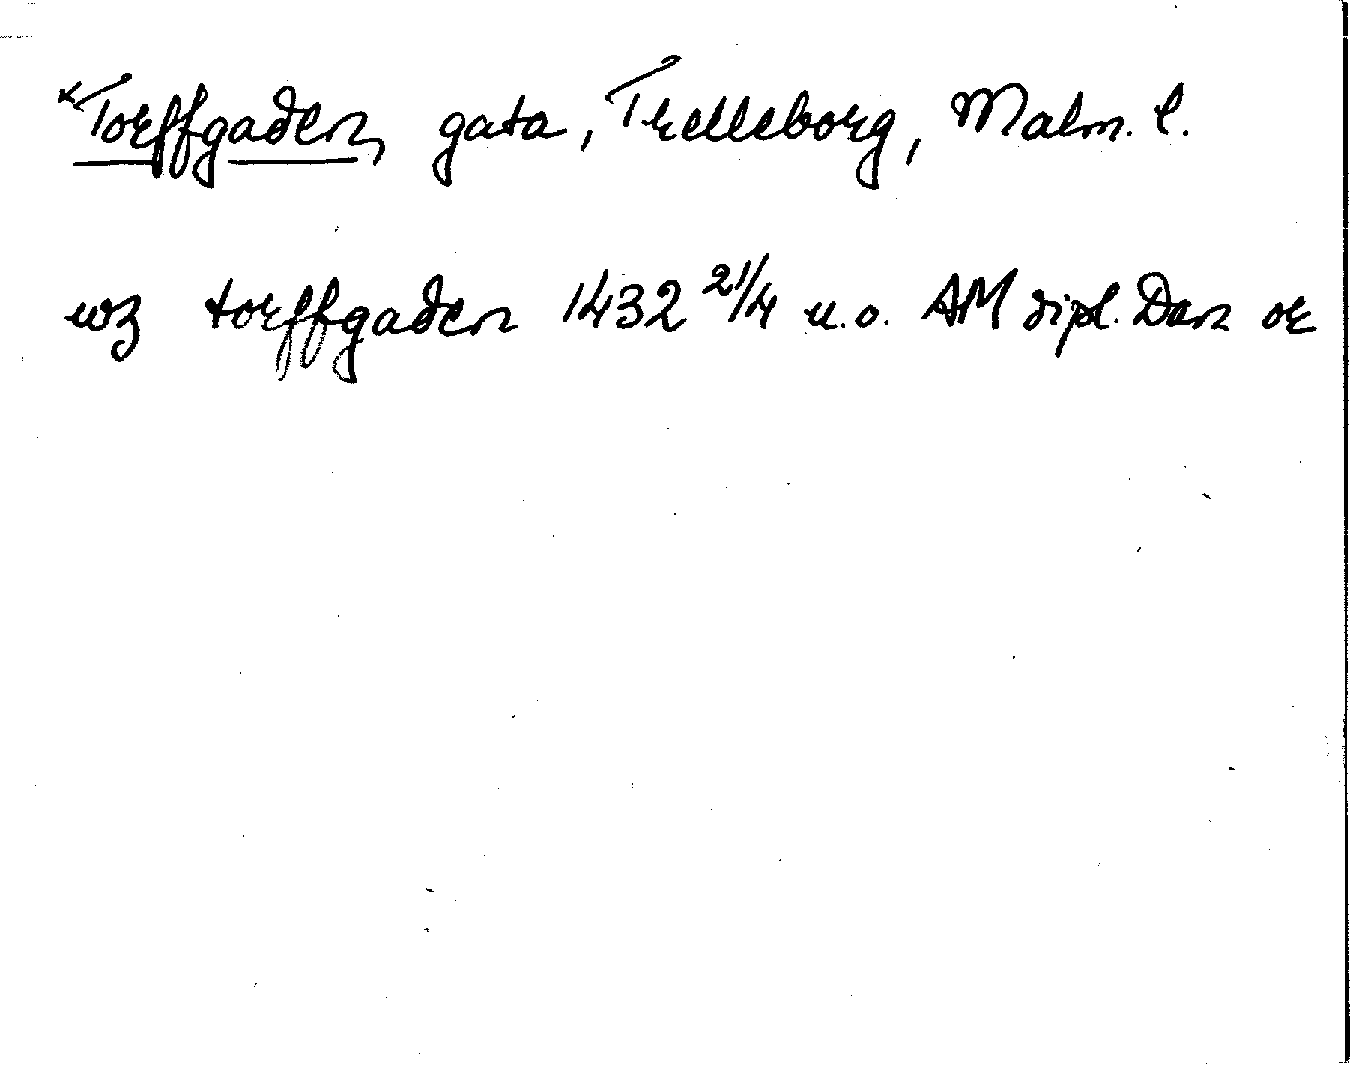 *Torffgaden, gata, Trelleborg, Malm. l.
wz torffgaden 1432 21/4 u.o. AM dipl. Dan or